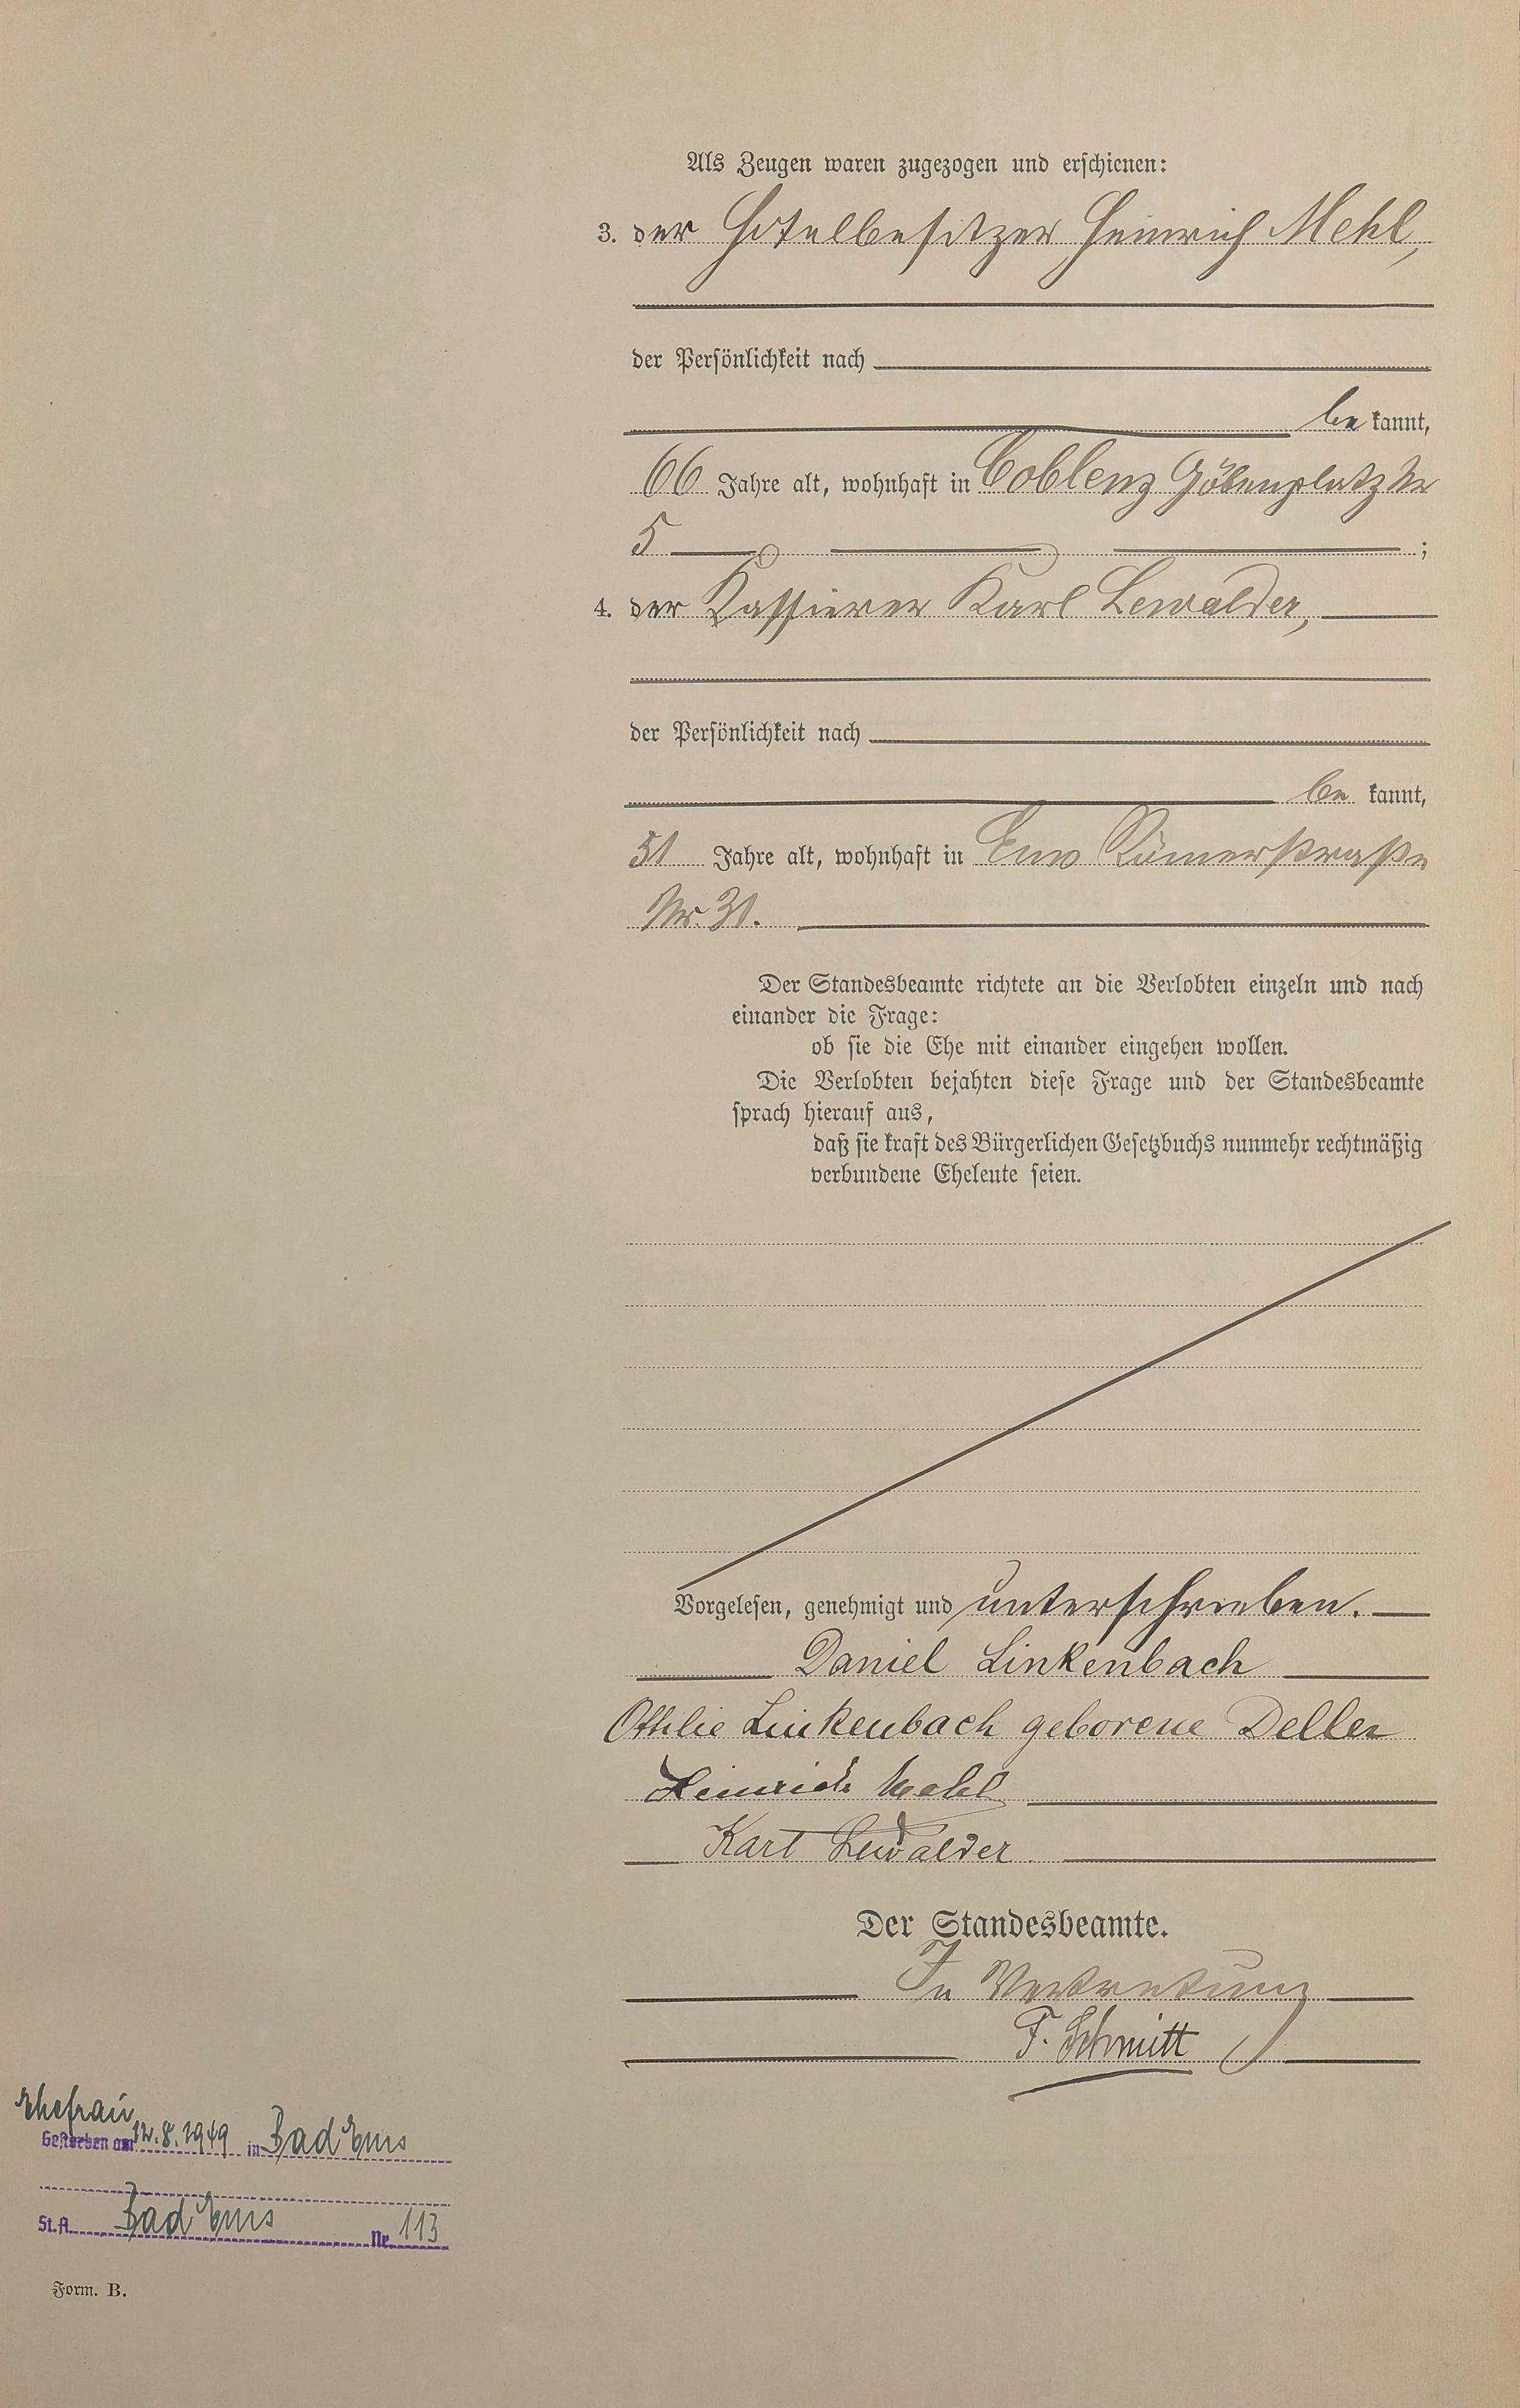 Als Zeugen waren zugezogen und erschienen:
3. der Hotelbesitzer Heinrich Mehl,
der Persönlichkeit nach
be kannt,
66 Jahre alt, wohnhaft in Coblenz Göbenplatz Nr
5 ;
4. der Kassierer Karl Lewalder,
der Persönlichkeit nach
be kannt,
51 Jahre alt, wohnhaft in Ems Römerstraße
Nr. 31.
Der Standesbeamte richtete an die Verlobten einzeln und nach
einander die Frage:
ob sie die Ehe mit einander eingehen wollen.
Die Verlobten bejahten diese Frage und der Standesbeamte
sprach hierauf aus,
daß sie kraft des Bürgerlichen Gesetzbuchs nunmehr rechtmäßig
verbundene Eheleute seien.
Vorgelesen, genehmigt und unterschrieben.
Daniel Linkenbach
Ottilie Linkenbach geborene Deller
Heinrich Mehl
Karl Lewalder
Der Standesbeamte.
In Vertretung
F. Schmitt
Ehefrau
Gestorben am 12.8.1949 in Bad Ems
St.A. Bad Ems Nr. 113
Form. B.